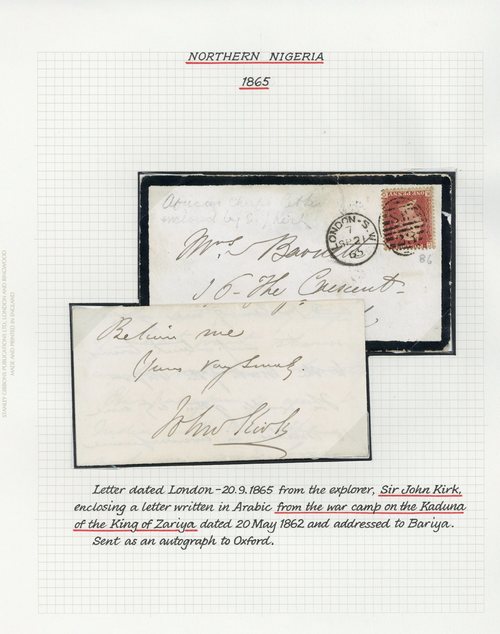 NORTHERN NIGERIA
1865
African Chief's letter
enclosed by Dr Kirk
LONDON-S.W
7
SP 21
65
Mrs
16-The Crescent
86
Believe me
Yours very
John Kirk
Letter dated London-20.9.1865 from the explorer, Sir John Kirk,
enclosing a letter written in Arabic from the war camp on the Kaduna
of the King of Zariya dated 20 May 1862 and addressed to Bariya.
Sent as an autograph to Oxford.
STANLEY GIBBONS PUBLICATIONS LTD, LONDON AND RINGWOOD
MADE AND PRINTED IN ENGLAND